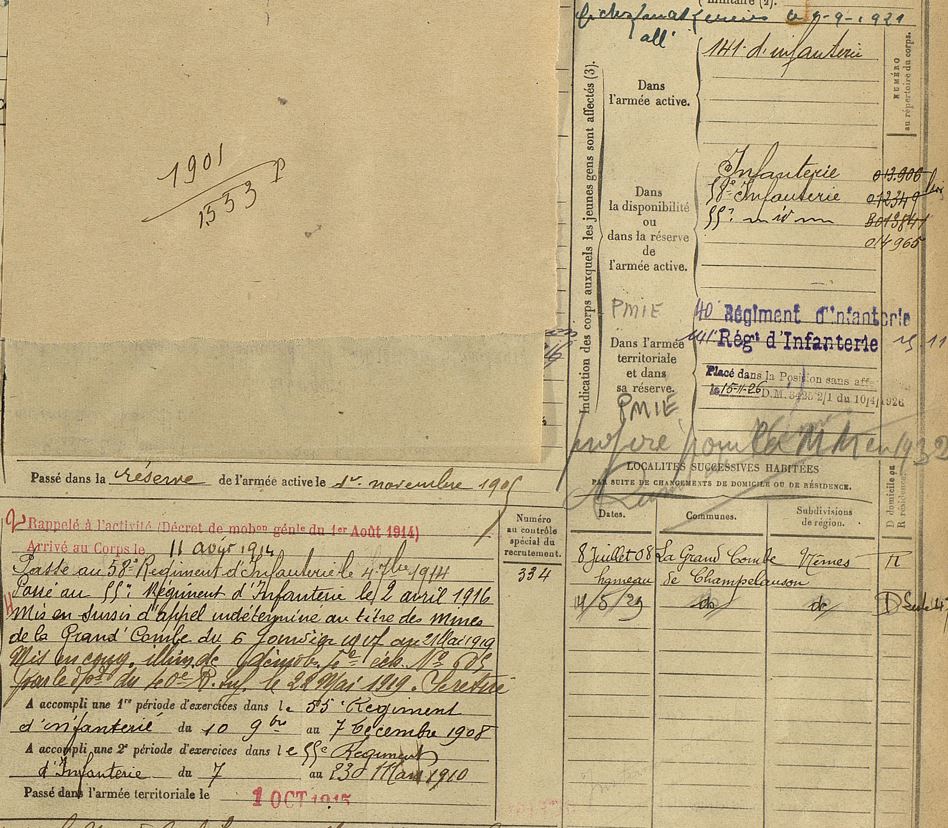 1901
1533
Passé dans la réserve de l'armée active le 1er novembre 190
Rappelé à l'activité (Décret de mobon génle du 1er Août 1914)
Arrivé au Corps le 11 août 1914
Passé au 58e Régiment d'Infanterie le 4 7bre 1914
Passé au 55e Régiment d'Infanterie le 2 avril 1916
Mis en sursis d'appel indéterminé au titre des mines
de la Grand'Combe du 6 1917 au 21 Mai 1919
Mis en cong. illim. de démob. éch. No
par le dpot du 40e R. Inf. le 22 Mai 1919. Se retire
A accompli une 1re période d'exercices dans le 55e Régiment
d'infanterie du 10 9bre au 7 Décembre 1908
A accompli une 2e période d'exercices dans le 55e Régiment
d'Infanterie du 7 au 23 Mars 1910
Passé dans l'armée territoriale le 1 OCT 1915
Numéro
au contrôle
spécial du
recrutement.
334
militaire (2).
le 9-9-1921
Indication des corps auxquels les jeunes gens sont affectés (3).
Dans
l'armée active.
141e d'infanterie
NUMÉRO
au répertoire du corps.
Dans
la disponibilité
ou
dans la réserve
de
l'armée active.
Infanterie
58e Infanterie 012349
55e
014965
PMIE
40 Régiment d'Infanterie
Dans l'armée
territoriale
et dans
sa réserve.
141e Régt d'Infanterie
Placé dans la Position sans aff
le 15-11-26 D.M. 2/1 du 10/4/1926
PMIE
pour en 1932
LOCALITÉS SUCCESSIVES HABITÉES
PAR SUITE DE CHANGEMENTS DE DOMICILE OU DE RÉSIDENCE.
Dates. Communes. Subdivisions
de région.
D domicile ou
R résidence
8 Juillet 08 La Grand Combe Nîmes R
hameau de Champclauson
14/5/29 do do D